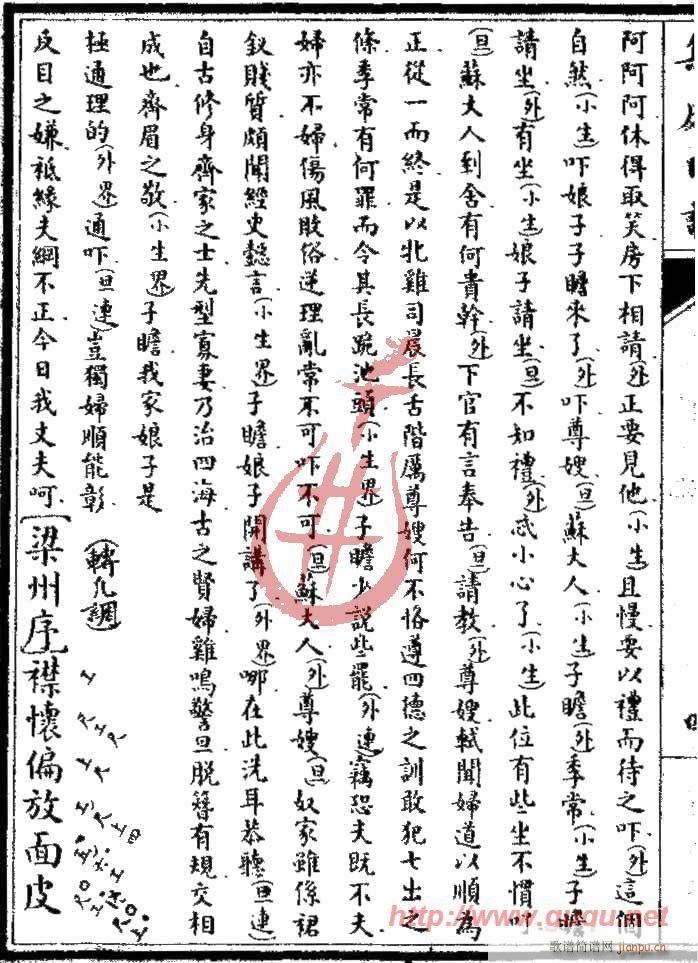 阿阿阿休得取笑房下相請(外)正要見他(小生)且慢要以禮而待之吓(外)這個
自然(小生)吓娘子子瞻來了(外)吓尊嫂(旦)蘇大人(小生)子瞻(外)季常(小生)子瞻
請坐(外)有坐(小生)娘子請坐(旦)不知禮(外)忒小心了(小生)此位有些坐不慣吓
(旦)蘇大人到舍有何貴幹(外)下官有言奉告(旦)請教(外)尊嫂軾聞婦道以順為
正從一而終是以牝雞司晨長舌階厲尊嫂何不恪遵四德之訓敢犯七出之
條季常有何罪而令其長跪池頭(小生界)子瞻少說些罷(外連)竊恐夫既不夫
婦亦不婦傷風敗俗逆理亂常不可吓不可(旦)蘇大人(外)尊嫂(旦)奴家雖係裙
釵賤質頗聞經史懿言(小生界)子瞻娘子開講了(外界)哪在此洗耳恭聽(旦連)
自古修身齊家之士先型寡妻乃治四海古之賢婦雞鳴警旦脫簪有規交相
成也齊眉之敬(小生界)子瞻我家娘子是
極通理的(外界)通吓(旦連)豈獨婦順能彰(轉凡調)
反目之嫌祗緣夫綱不正今日我丈夫呵[梁州序]襟懷偏放面皮
http://www.gepu.net
歌谱简谱网
jianpu.cn